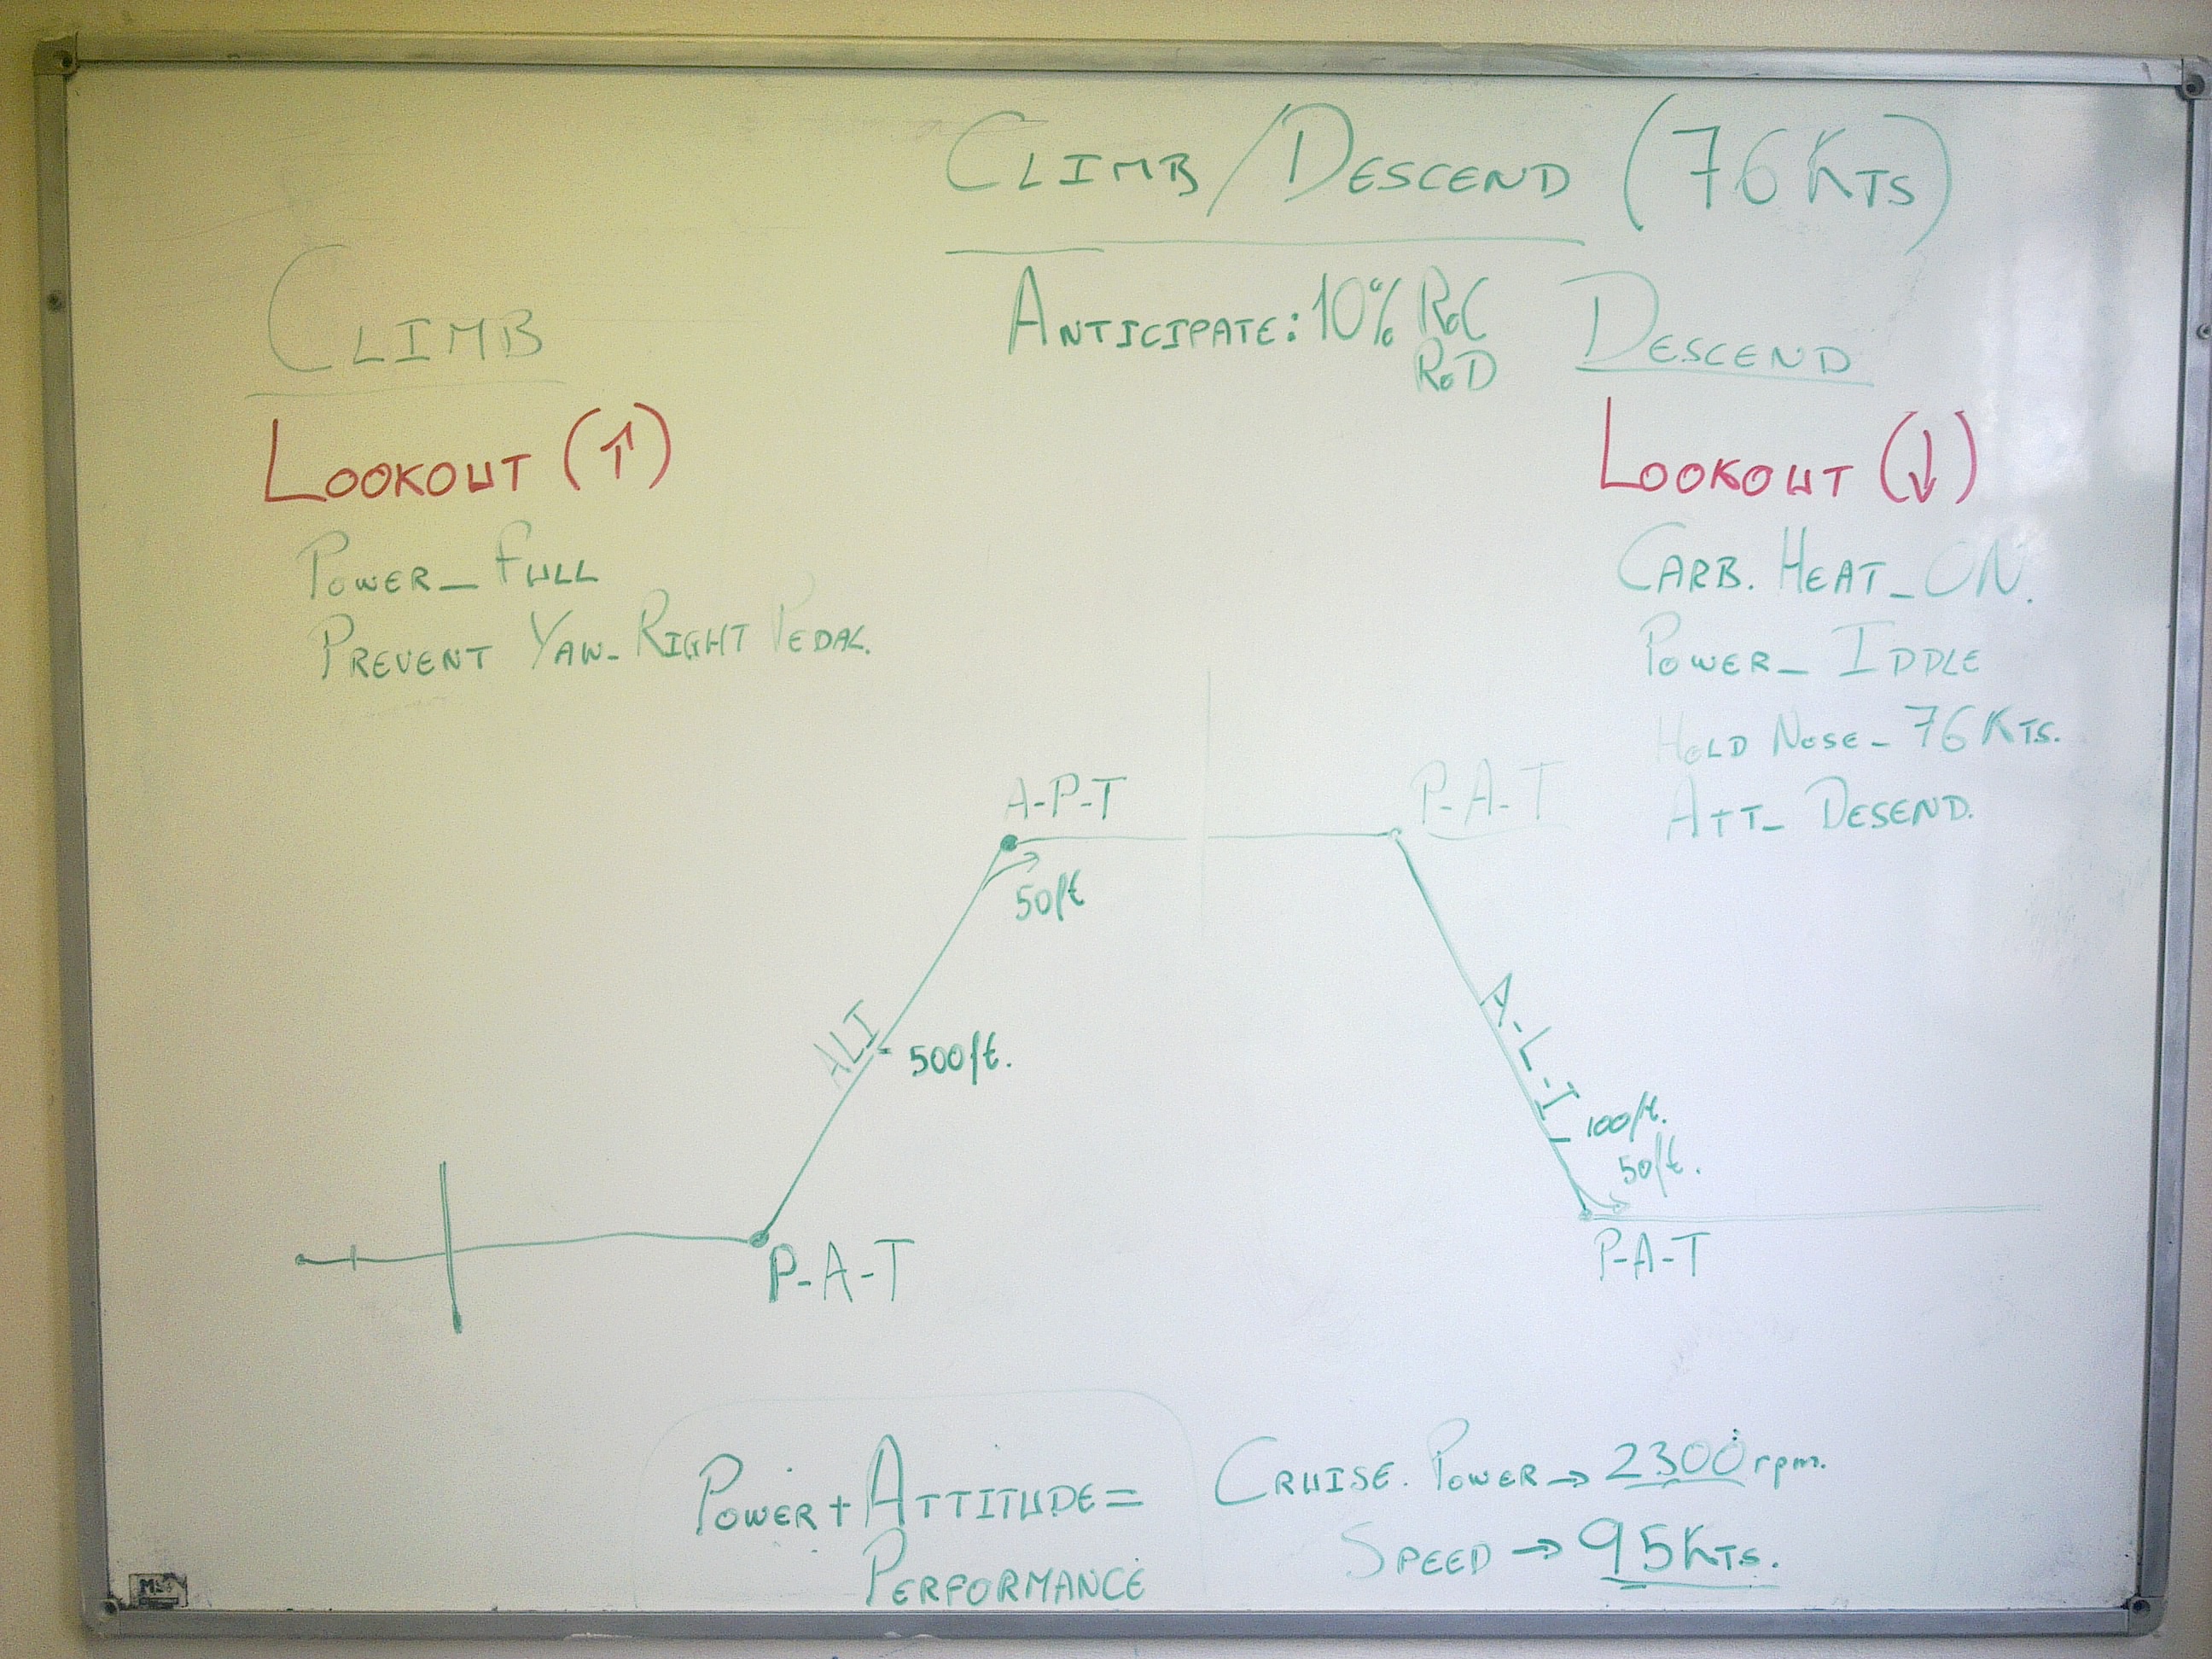 CLIMB/DESCEND (76 KTS)
ANTICIPATE: 10% RoC
RoD
CLIMB
LOOKOUT (↑)
POWER_ FULL
PREVENT YAW_ RIGHT PEDAL.
DESCEND
LOOKOUT (↓)
CARB. HEAT_ ON.
POWER_ IDDLE
HOLD NOSE_ 76 KTS.
ATT_ DESEND.
A-P-T
50ft
ALI
500ft.
P-A-T
P-A-T
A-L-I
100ft.
50ft.
P-A-T
POWER + ATTITUDE =
PERFORMANCE
CRUISE. POWER → 2300 rpm.
SPEED → 95 KTS.